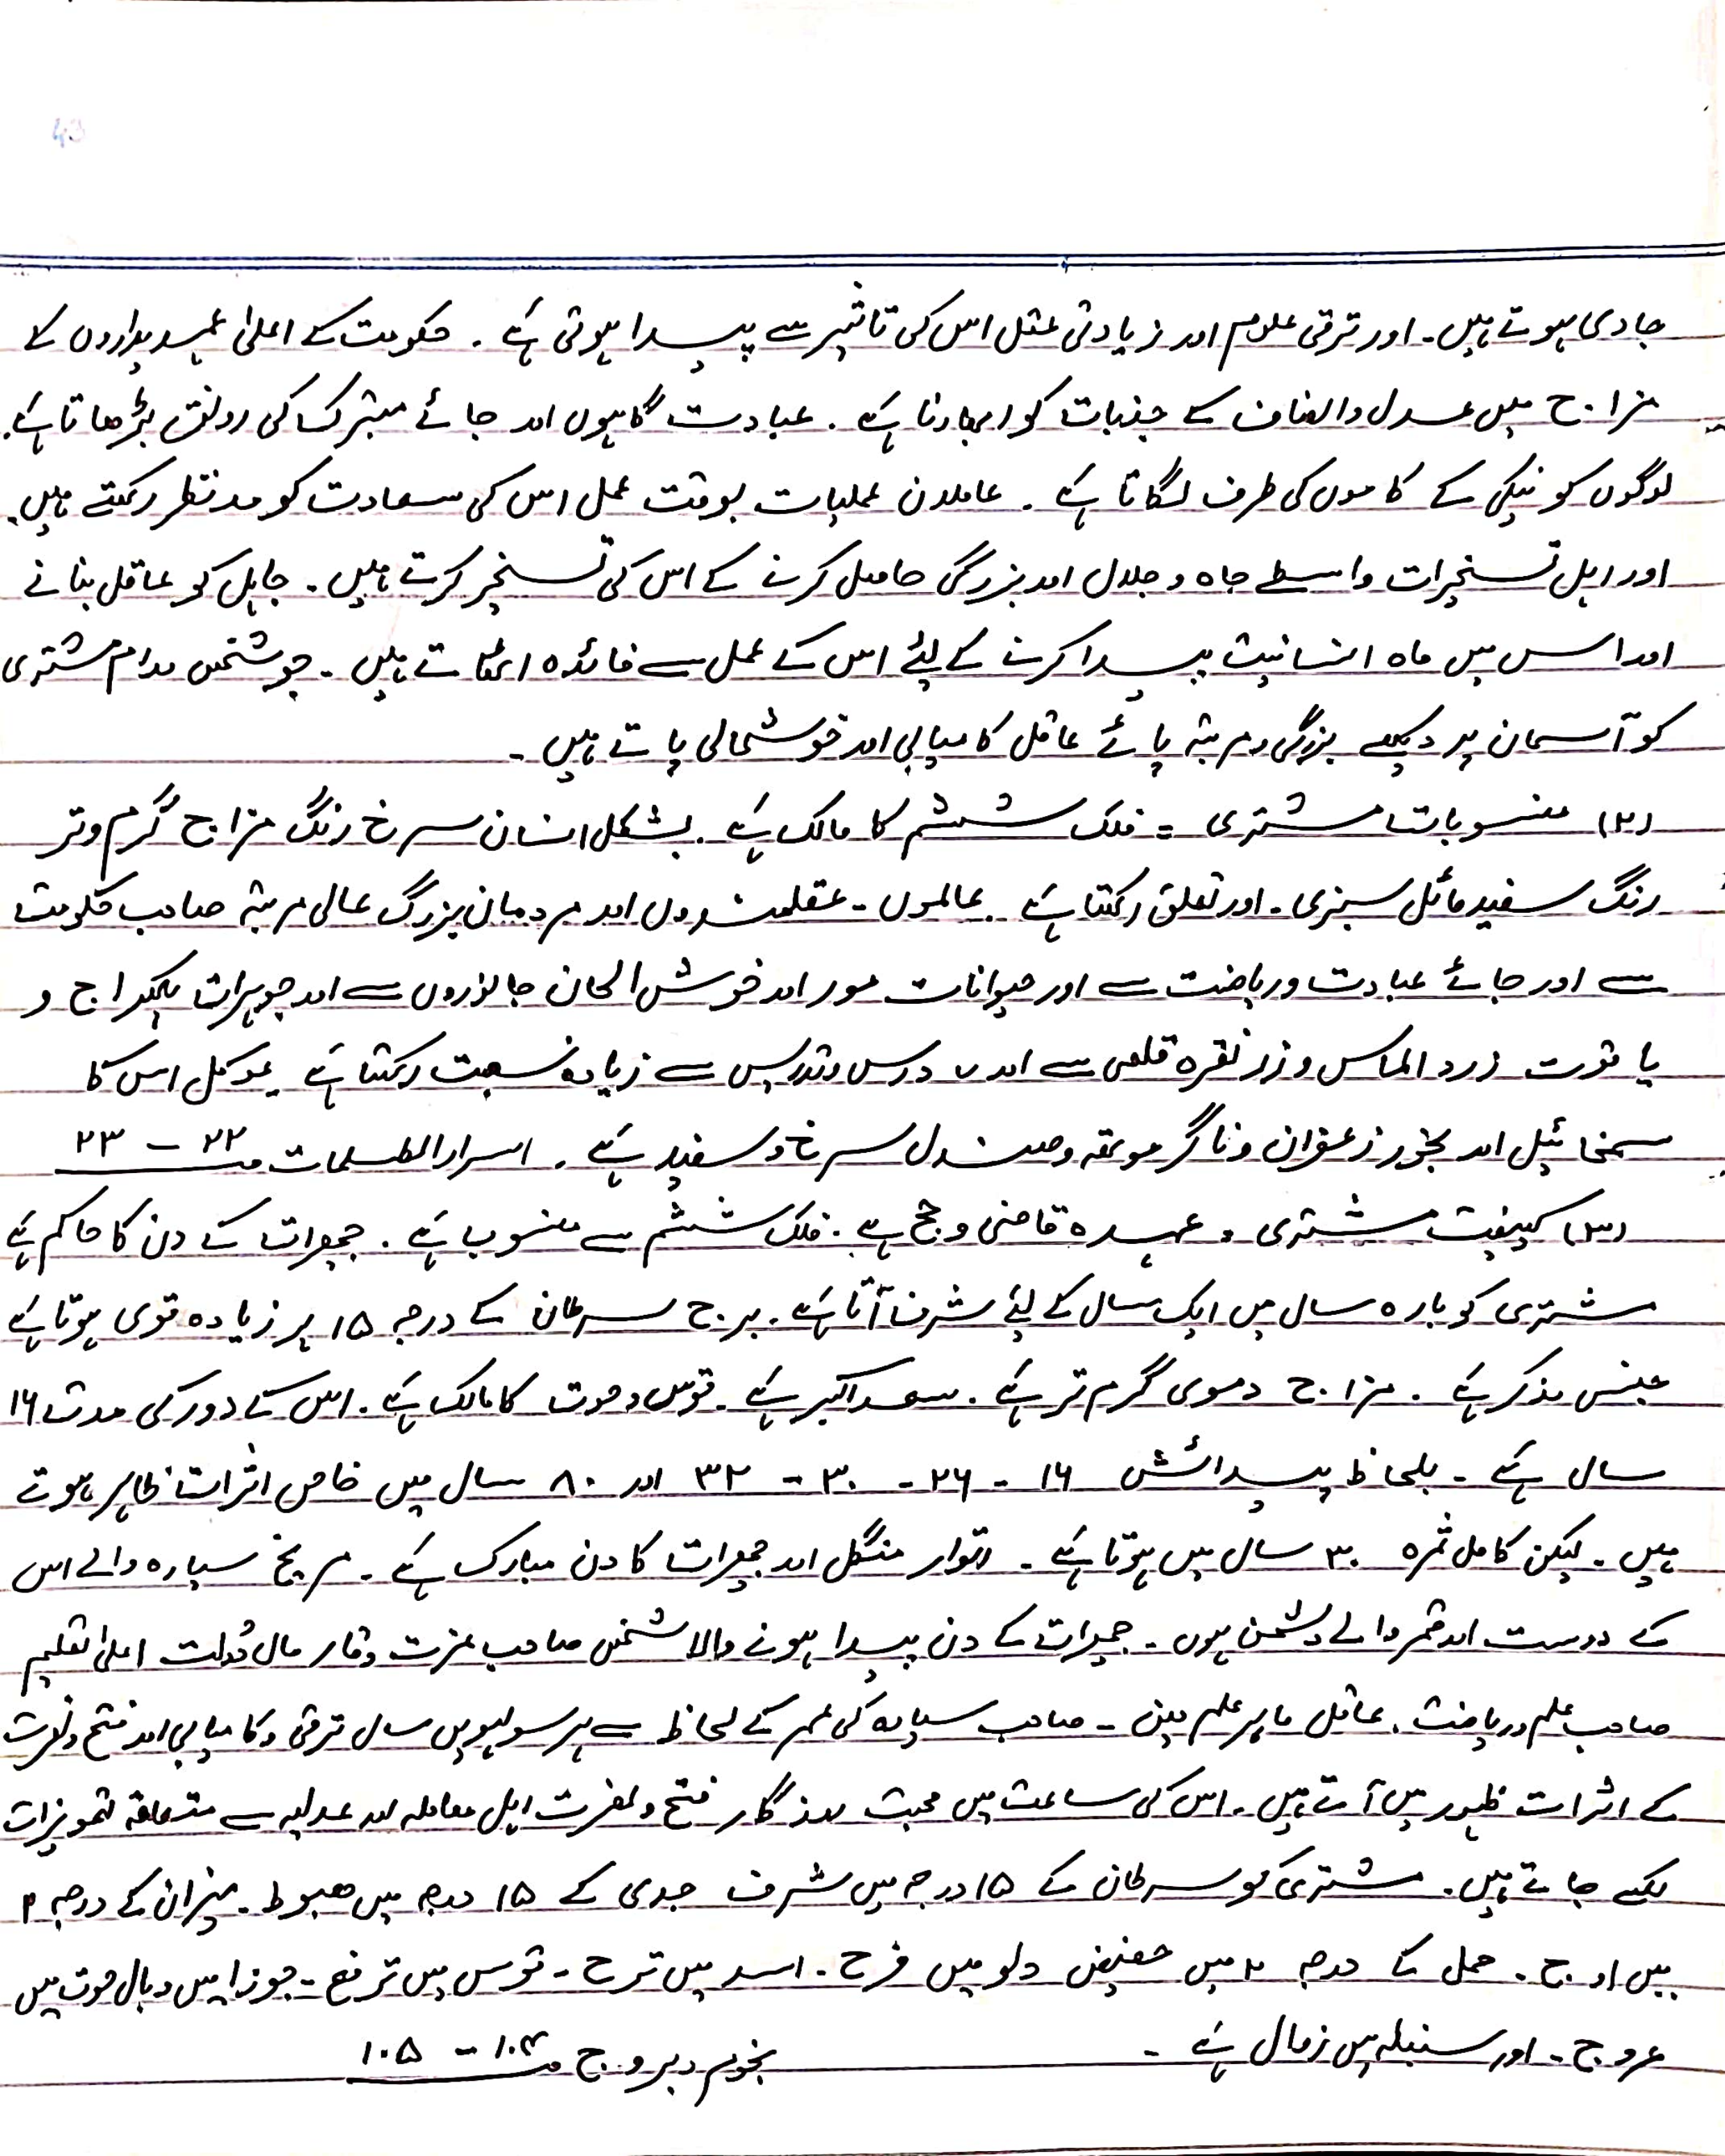 43
جاری ہوتے ہیں۔ اور ترقی علوم اور زیادتی عقل اس کی تاثیر سے پیدا ہوتی ہے۔ حکومت کے اعلیٰ عہدیداروں کے
مزاج میں عدل و انصاف کے جذبات کو ابھارتا ہے۔ عبادت گاہوں اور جائے متبرک کی رونق بڑھاتا ہے۔
لوگوں کو نیکی کے کاموں کی طرف لگاتا ہے۔ عاملان عملیات بوقت عمل اس کی سعادت کو مدنظر رکھتے ہیں۔
اور اہل تسخیرات واسطے جاہ و جلال اور بزرگی حاصل کرنے کے اس کی تسخیر کرتے ہیں۔ جاہل کو عاقل بنانے
اور اس میں ماہ انسانیت پیدا کرنے کے لئے اس کے عمل سے فائدہ اٹھاتے ہیں۔ جو شخص مدام مشتری
کو آسمان پر دیکھے بزرگی و مرتبہ پائے عاقل کامیابی اور خوشحالی پاتے ہیں۔
(۲) منسوبات مشتری = فلک ششم کا مالک ہے۔ بشکل انسان سرخ رنگ مزاج گرم و تر
رنگ سفید مائل سبزی۔ اور تعلق رکھتا ہے۔ عالموں۔ عقلمندوں اور مردمان بزرگ عالی مرتبہ صاحب حکومت
سے اور جائے عبادت و ریاضت سے اور حیوانات مور اور خوش الحان جانوروں سے اور جوہرات پکھراج و
یاقوت زرد الماس و زر نقرہ قلعی سے اور درس و تدریس سے زیادہ نسبت رکھتا ہے مؤکل اس کا
سمخائیل اور بخور زعفران و ناگر موتھہ و صندل سرخ و سفید ہے۔ اسرار الطلسمات ص ۲۲ – ۲۳
(۳) کیفیت مشتری۔ عہدہ قاضی و جج ہے۔ فلک ششم سے منسوب ہے۔ جمعرات کے دن کا حاکم ہے
مشتری کو بارہ سال میں ایک سال کے لئے شرف آتا ہے۔ برج سرطان کے درجہ ۱۵ پر زیادہ قوی ہوتا ہے
جنس مذکر ہے۔ مزاج دموی گرم تر ہے۔ سعد اکبر ہے۔ قوس و حوت کا مالک ہے۔ اس کے دور کی مدت ۱۶
سال ہے۔ بلحاظ پیدائش ۱۶ - ۲۶ - ۳۰ - ۳۲ اور ۸۰ سال میں خاص اثرات ظاہر ہوتے
ہیں۔ لیکن کامل ثمرہ ۳۰ سال میں ہوتا ہے۔ اتوار منگل اور جمعرات کا دن مبارک ہے۔ مریخ سیارہ والے اس
کے دوست اور قمر والے دشمن ہوں۔ جمعرات کے دن پیدا ہونے والا شخص صاحب عزت وقار مال دولت اعلیٰ تعلیم
صاحب علم و ریاضت۔ عاقل ماہر علم میں۔ صاحب سیارہ کی عمر کے لحاظ سے ہر سولہویں سال ترقی و کامیابی اور فتح و نصرت
کے اثرات ظہور میں آتے ہیں۔ اس کی ساعت میں محبت روزگار فتح و نصرت اہل معاملہ اور عدلیہ سے متعلقہ تعویزات
لکھے جاتے ہیں۔ مشتری کو سرطان کے ۱۵ درجہ میں شرف جدی کے ۱۵ درجہ میں ھبوط۔ میزان کے درجہ ۲
میں اوج۔ حمل کے درجہ ۲ میں حضیض دلو میں فرح۔ اسد میں ترح۔ قوس میں ترفع۔ جوزا میں وبال حوت میں
عروج۔ اور سنبلہ میں زوال ہے۔ نجوم و بروج ص ۱۰۴ - ۱۰۵